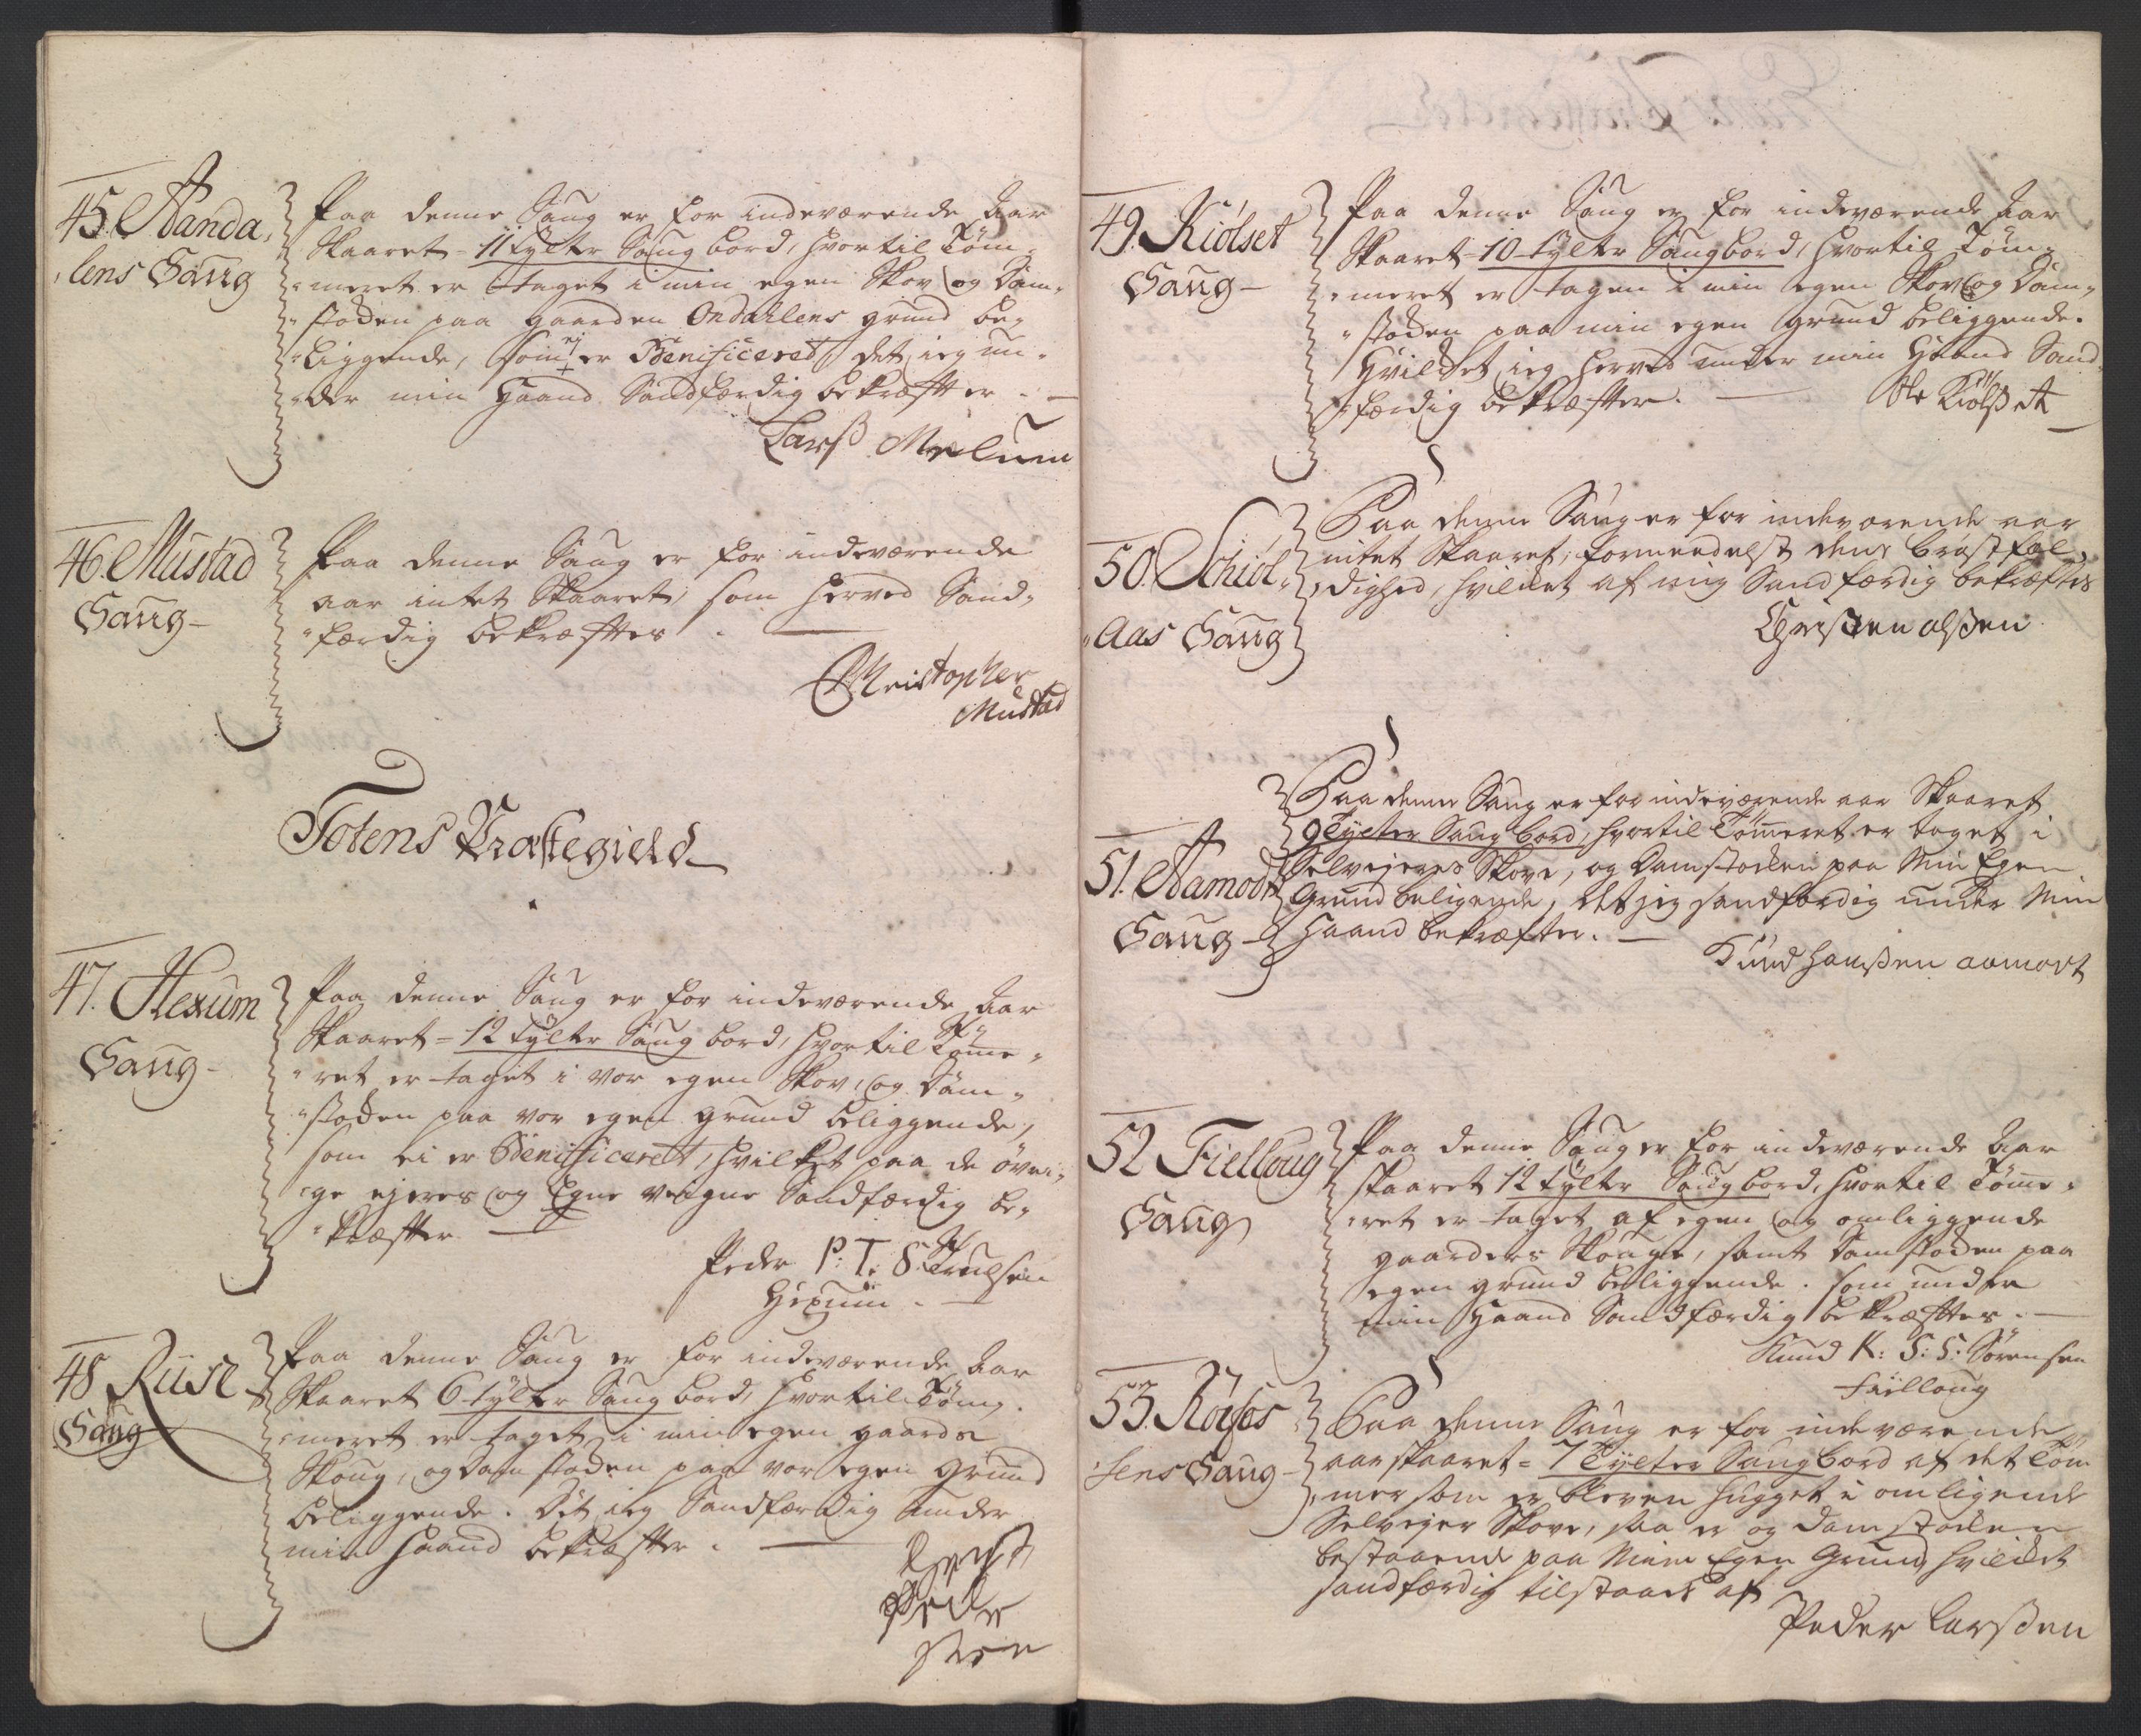 45. Aanda,
lens Saug
Paa denne Saug er for indeværende Aar
Skaaret - 11 tylter Saug bord, hvortil Töm,
"meret er taget i min egen Skov og Dam,
"stoden paa gaarden Ondalens grund be,
"liggende, som ej er Benificeret, det ieg un,
"der min Haand Sandfærdig bekræfter. —
Larß Mælum
46. Mustad
Saug —
Paa denne Saug er for indeværende
aar intet Skaaret, som herved Sand,
"færdig bekræftes. —
Christopher
Mustad
Totens Præstegield
47. Hexum
Saug —
Paa denne Saug er for indeværende Aar
Skaaret = 12 tylter Saug bord, hvortil Töme,
"ret er taget i vor egen Skov, og Dam,
"stoden paa vor egen grund beliggende,
som ei er Benificeret, hvilket paa de övri,
"ge ejeres og Egne veigne Sandfærdig be,
"kræfter —
Peder P: T: S: Trulsen
Hexum. —
48 Ruse
Saug
Paa denne Saug er for indeværende Aar
Skaaret 6 tylter Saug bord, hvortil Töm,
"meret er taget i min egen gaards
Skoug, og dam stoden paa vor egen grund
beliggende. Det ieg Sandfærdig under
min Haand bekræfter. —
49. Kiölset
Saug —
Paa denne Saug er for indeværende Aar
Skaaret = 10 tylter Saugbord, hvortil Töm,
"meret er tagen i min egen Skov og Dam,
"stoden paa min egen grund beliggende.
Hvilket ieg herved under min Haand Sand,
"færdig bekræfter. —
Ole Kiölßet
50. Schiöl,
"Aas Saug
Paa denne Saug er for indeværende aar
intet Skaaret, formedelst dens bröstfæl,
"dighed, hvilket af mig Sandfærdig bekræftes
Christen olßen
51. Aamodt
Saug —
Paa denne Saug er for indeværende aar Skaaret
9 Tylter Saug bord, hvortil Tömeret er taget i
Selvejeres Skove, og Damstocken paa Min Egen
Grund beligende, det jeg sandfærdig under Min
Haand bekræfter. —
Knud Hanßen aamort
52 Fielloug
Saug
Paa denne Saug er for indeværende Aar
skaaret 12 tylter Saug bord, hvortil Töme,
"ret er taget af egen og omliggende
gaarders Skouge, samt Dam stoden paa
egen grund beliggende. som under
min Haand Sandfærdig bekræftes. —
Knud K: S: S: Sörensen
Fielloug
53. Röises
"sens Saug —
Paa denne Saug er for indeværende
aar skaaret = 7 Tylter Saug bord af det Töm
"mer som er bleven hugget i omligende
Selvejer Skove, saa er og dam stocken
bestaaende paa Min Egen Grund hvilket
sandfærdig tilstaaes af
Peder Larßen